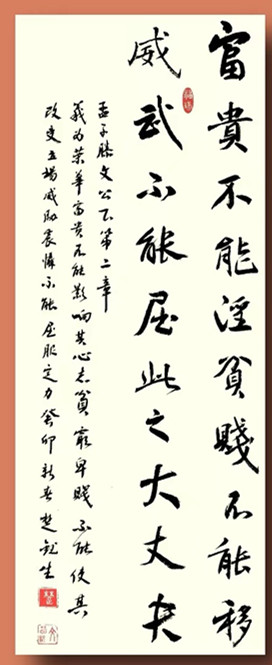 富貴不能淫貧賤不能移
威武不能屈此之大丈夫
孟子滕文公下第二章
義為榮華富貴不能影响其心志貧窮卑賤不能使其
改变立場威助震懾不能屈服定力癸卯新春楚銳生